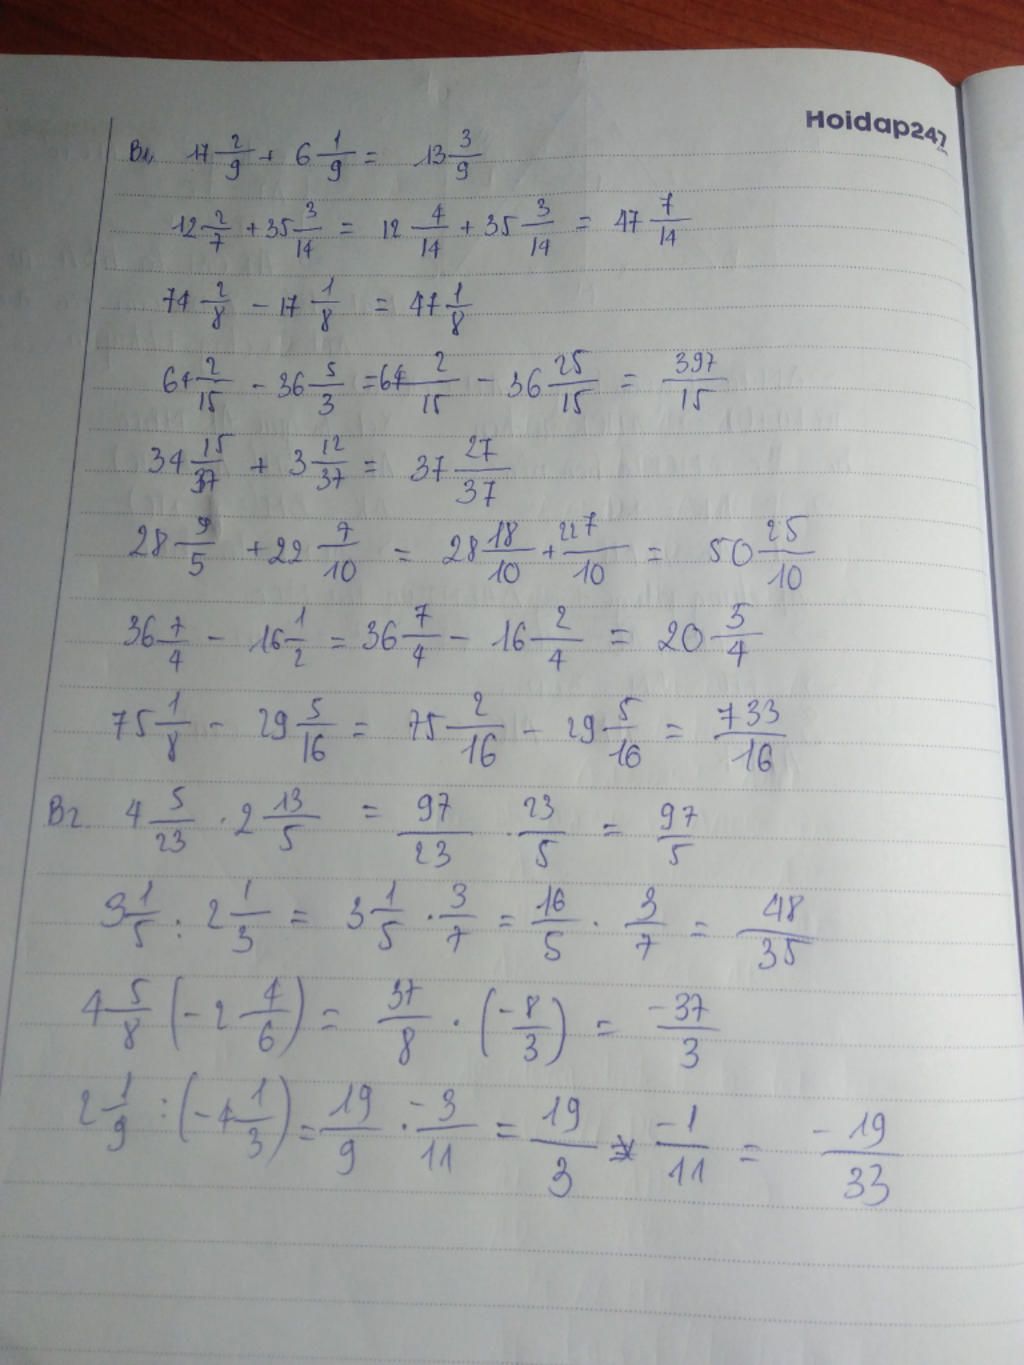 Hoidap247
B1, 17 2/9 + 6 1/9 = 13 3/9
12 2/7 + 35 3/14 = 12 4/14 + 35 3/14 = 47 7/14
74 2/8 - 17 1/8 = 47 1/8
64 2/15 - 36 5/3 = 64 2/15 - 36 25/15 = 397/15
34 15/37 + 3 12/37 = 37 27/37
28 9/5 + 22 7/10 = 28 18/10 + 227/10 = 50 25/10
36 7/4 - 16 1/2 = 36 7/4 - 16 2/4 = 20 5/4
75 1/8 - 29 5/16 = 75 2/16 - 29 5/16 = 733/16
B2. 4 5/23 . 2 13/5 = 97/23 . 23/5 = 97/5
3 1/5 : 2 1/3 = 3 1/5 . 3/7 = 16/5 . 3/7 = 48/35
4 5/8 (-2 4/6) = 37/8 . (-8/3) = -37/3
2 1/9 : (-4 1/3) = 19/9 . -3/11 = 19/3 . -1/11 = -19/33